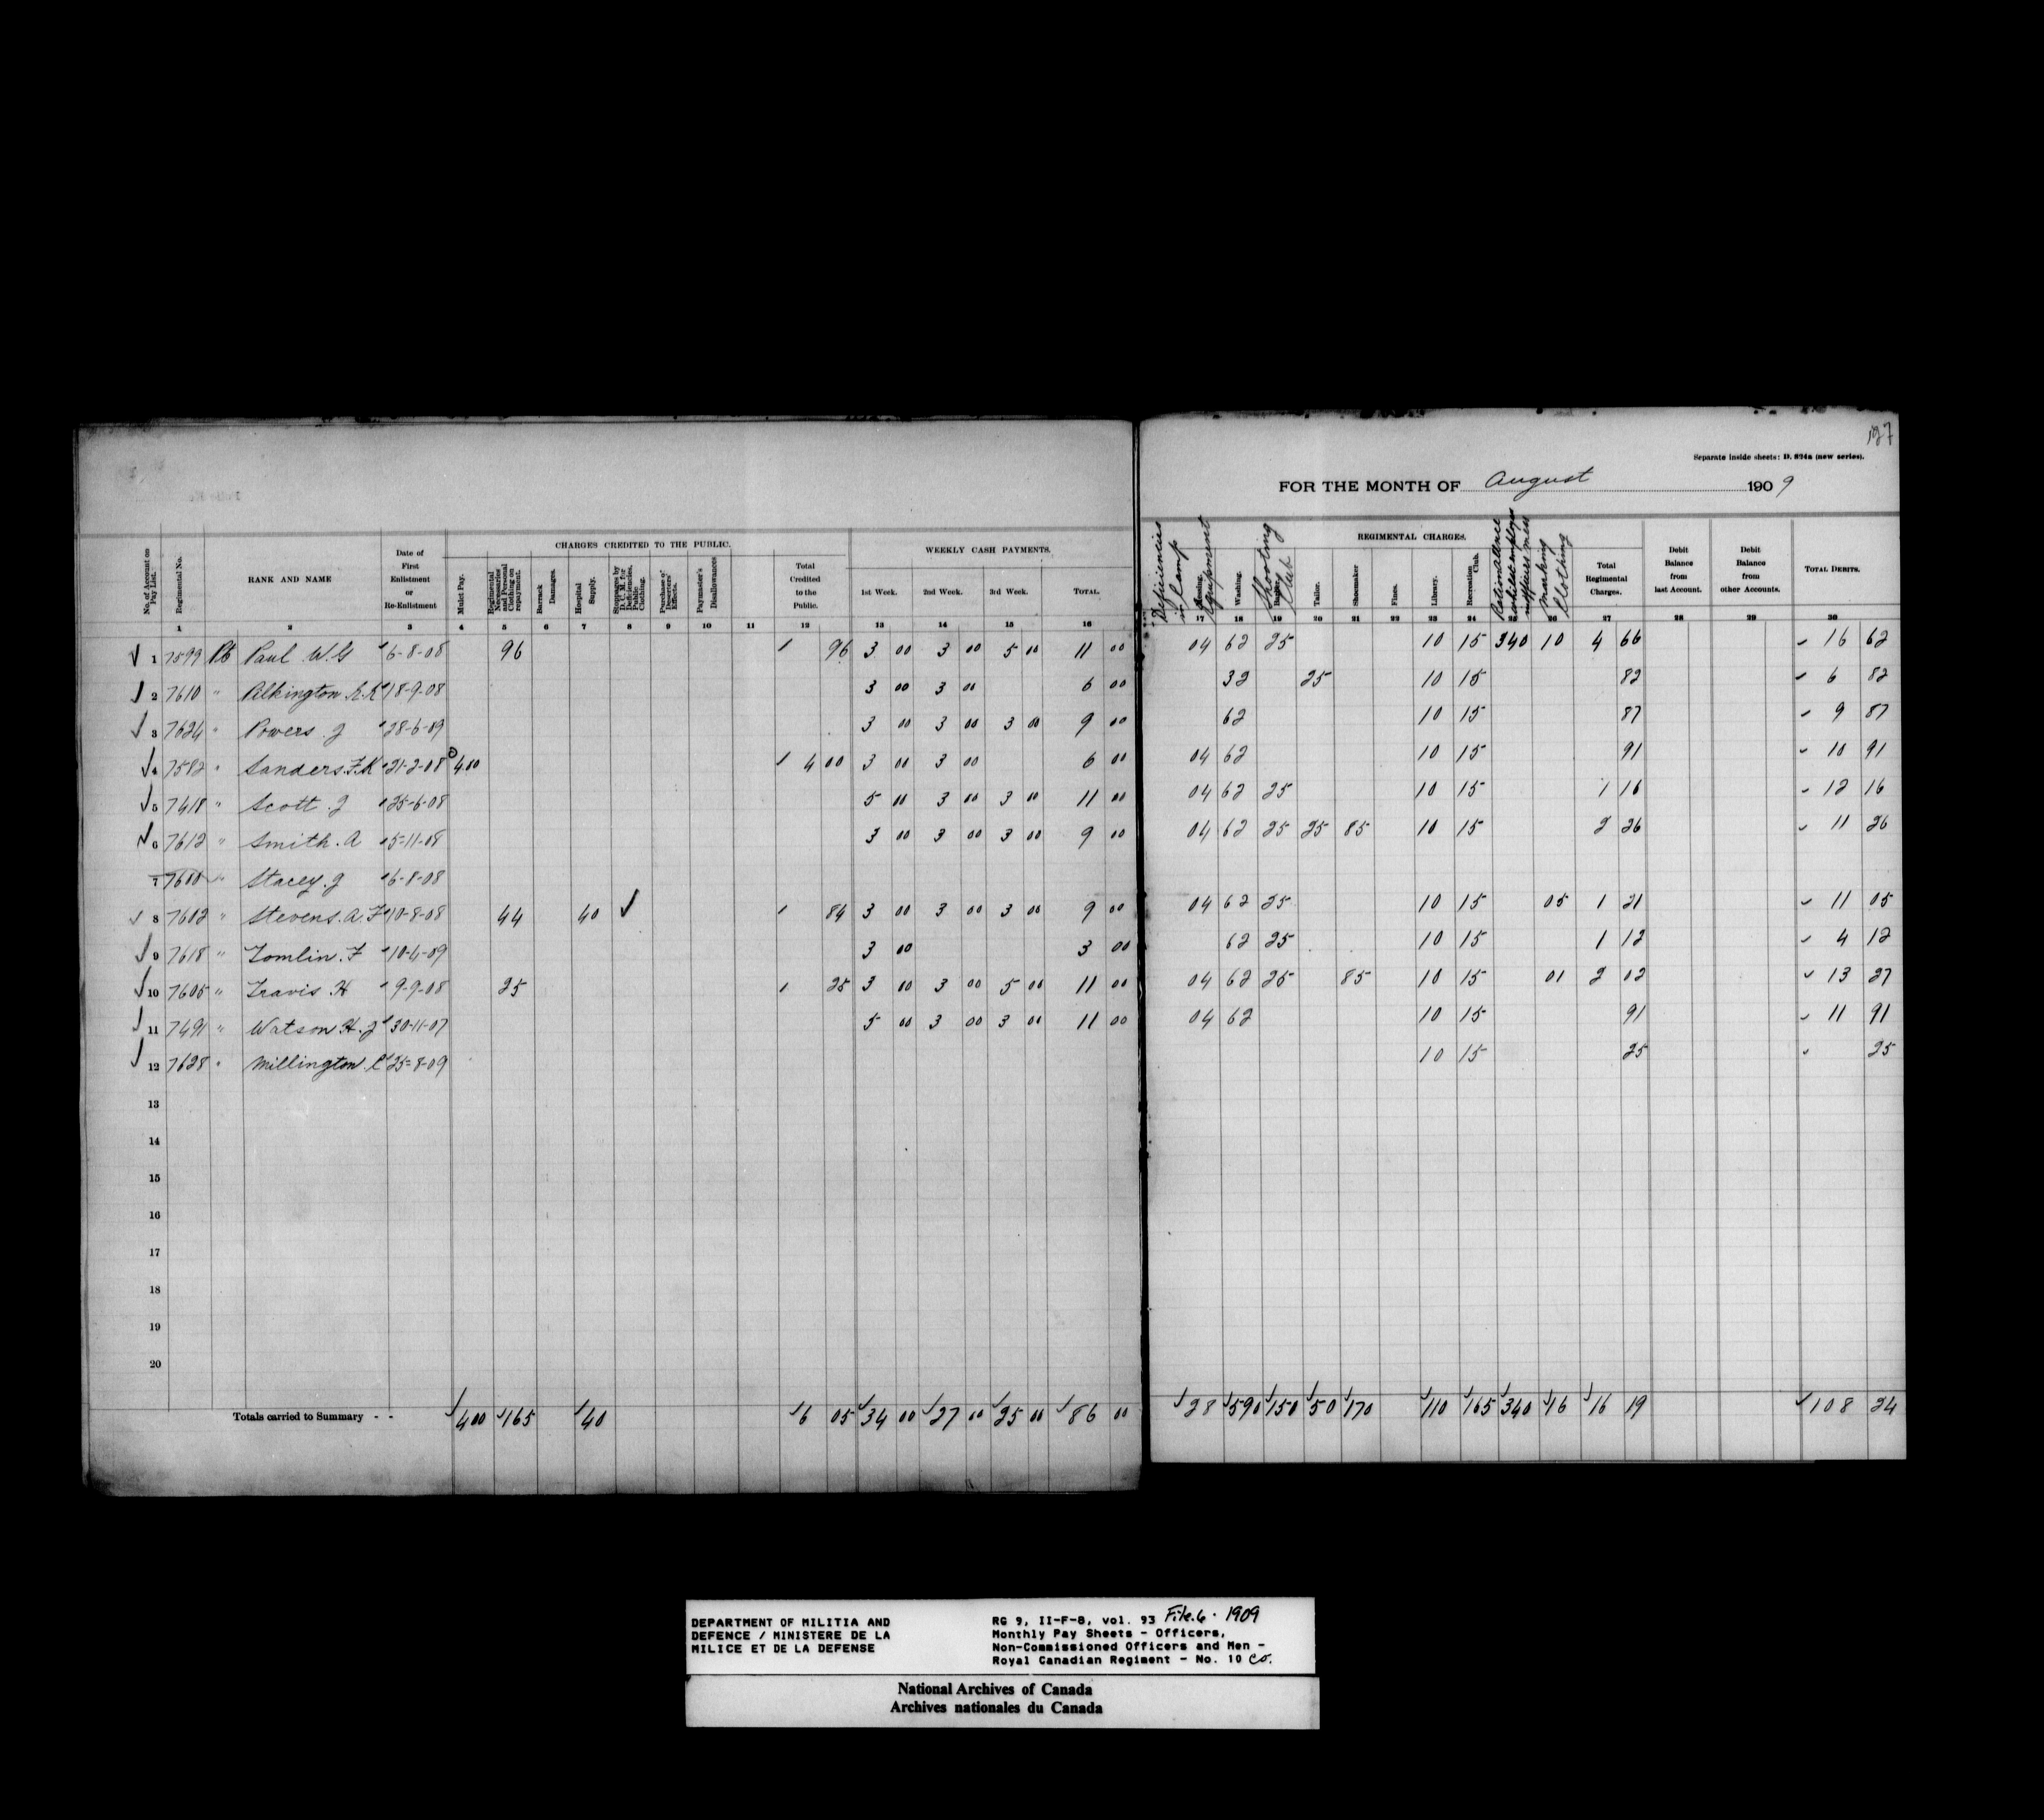 127
Separate inside sheets: D. 824a (new series).
FOR THE MONTH OF August 1909
No. of Account on Pay List.
Regimental No.
RANK AND NAME
Date of First Enlistment or Re-Enlistment
CHARGES CREDITED TO THE PUBLIC.
Mulct Pay.
Regimental Necessaries and Personal Clothing on repayment.
Barrack Damages.
Hospital Supply.
Stoppages by D.C.M. for Deficiencies, Public Clothing.
Purchase of Deserters' Effects.
Paymaster's Disallowances
Total Credited to the Public.
WEEKLY CASH PAYMENTS.
1st Week. 2nd Week. 3rd Week. TOTAL.
Deficiencies in Camp Equipment
REGIMENTAL CHARGES.
Washing.
Shooting Club
Tailor.
Shoemaker
Fines.
Library.
Recreation Club.
Marking Clothing
Total Regimental Charges.
Debit Balance from last Account.
Debit Balance from other Accounts.
TOTAL DEBITS.
1 2 3 4 5 6 7 8 9 10 11 12 13 14 15 16 17 18 19 20 21 22 23 24 25 26 27 28 29 30
1 7599 Pte Paul W.G 6-8-08 96 96 3 00 3 00 5 00 11 00 04 62 25 10 15 340 10 4 66 16 62
2 7610 " Pilkington R.R 18-9-08 3 00 3 00 6 00 32 25 10 15 82 6 82
3 7624 " Powers. J 28-6-09 3 00 3 00 3 00 9 00 62 10 15 87 9 87
4 7582 " Sanders. F.K 21-2-08 4.00 4 00 3 00 3 00 6 00 04 62 10 15 91 10 91
5 7418 " Scott. J 25-6-08 5 00 3 00 3 00 11 00 04 62 25 10 15 1 16 12 16
6 7612 " Smith. A 5-11-08 3 00 3 00 3 00 9 00 04 62 25 25 85 10 15 2 26 11 26
7 7600 " Stacey. J 6-8-08
8 7602 " Stevens. A. F 10-8-08 44 40 84 3 00 3 00 3 00 9 00 04 62 25 10 15 05 1 21 11 05
9 7618 " Tomlin. F 10-4-09 3 00 3 00 62 25 10 15 1 12 4 12
10 7605 " Travis. H 9-9-08 25 25 3 00 3 00 5 00 11 00 04 62 25 85 10 15 01 2 02 13 27
11 7491 " Watson H. J 30-11-07 5 00 3 00 3 00 11 00 04 62 10 15 91 11 91
12 7628 " Millington. C 25-8-09 10 15 25 25
13
14
15
16
17
18
19
20
Totals carried to Summary - - 400 165 40 6 05 34 00 27 00 25 00 86 00 28 590 150 50 170 110 165 340 16 16 19 108 24
DEPARTMENT OF MILITIA AND
DEFENCE / MINISTERE DE LA
MILICE ET DE LA DEFENSE
RG 9, II-F-8, vol. 93 File. 6. 1909
Monthly Pay Sheets - Officers,
Non-Commissioned Officers and Men -
Royal Canadian Regiment - No. 10 Co.
National Archives of Canada
Archives nationales du Canada